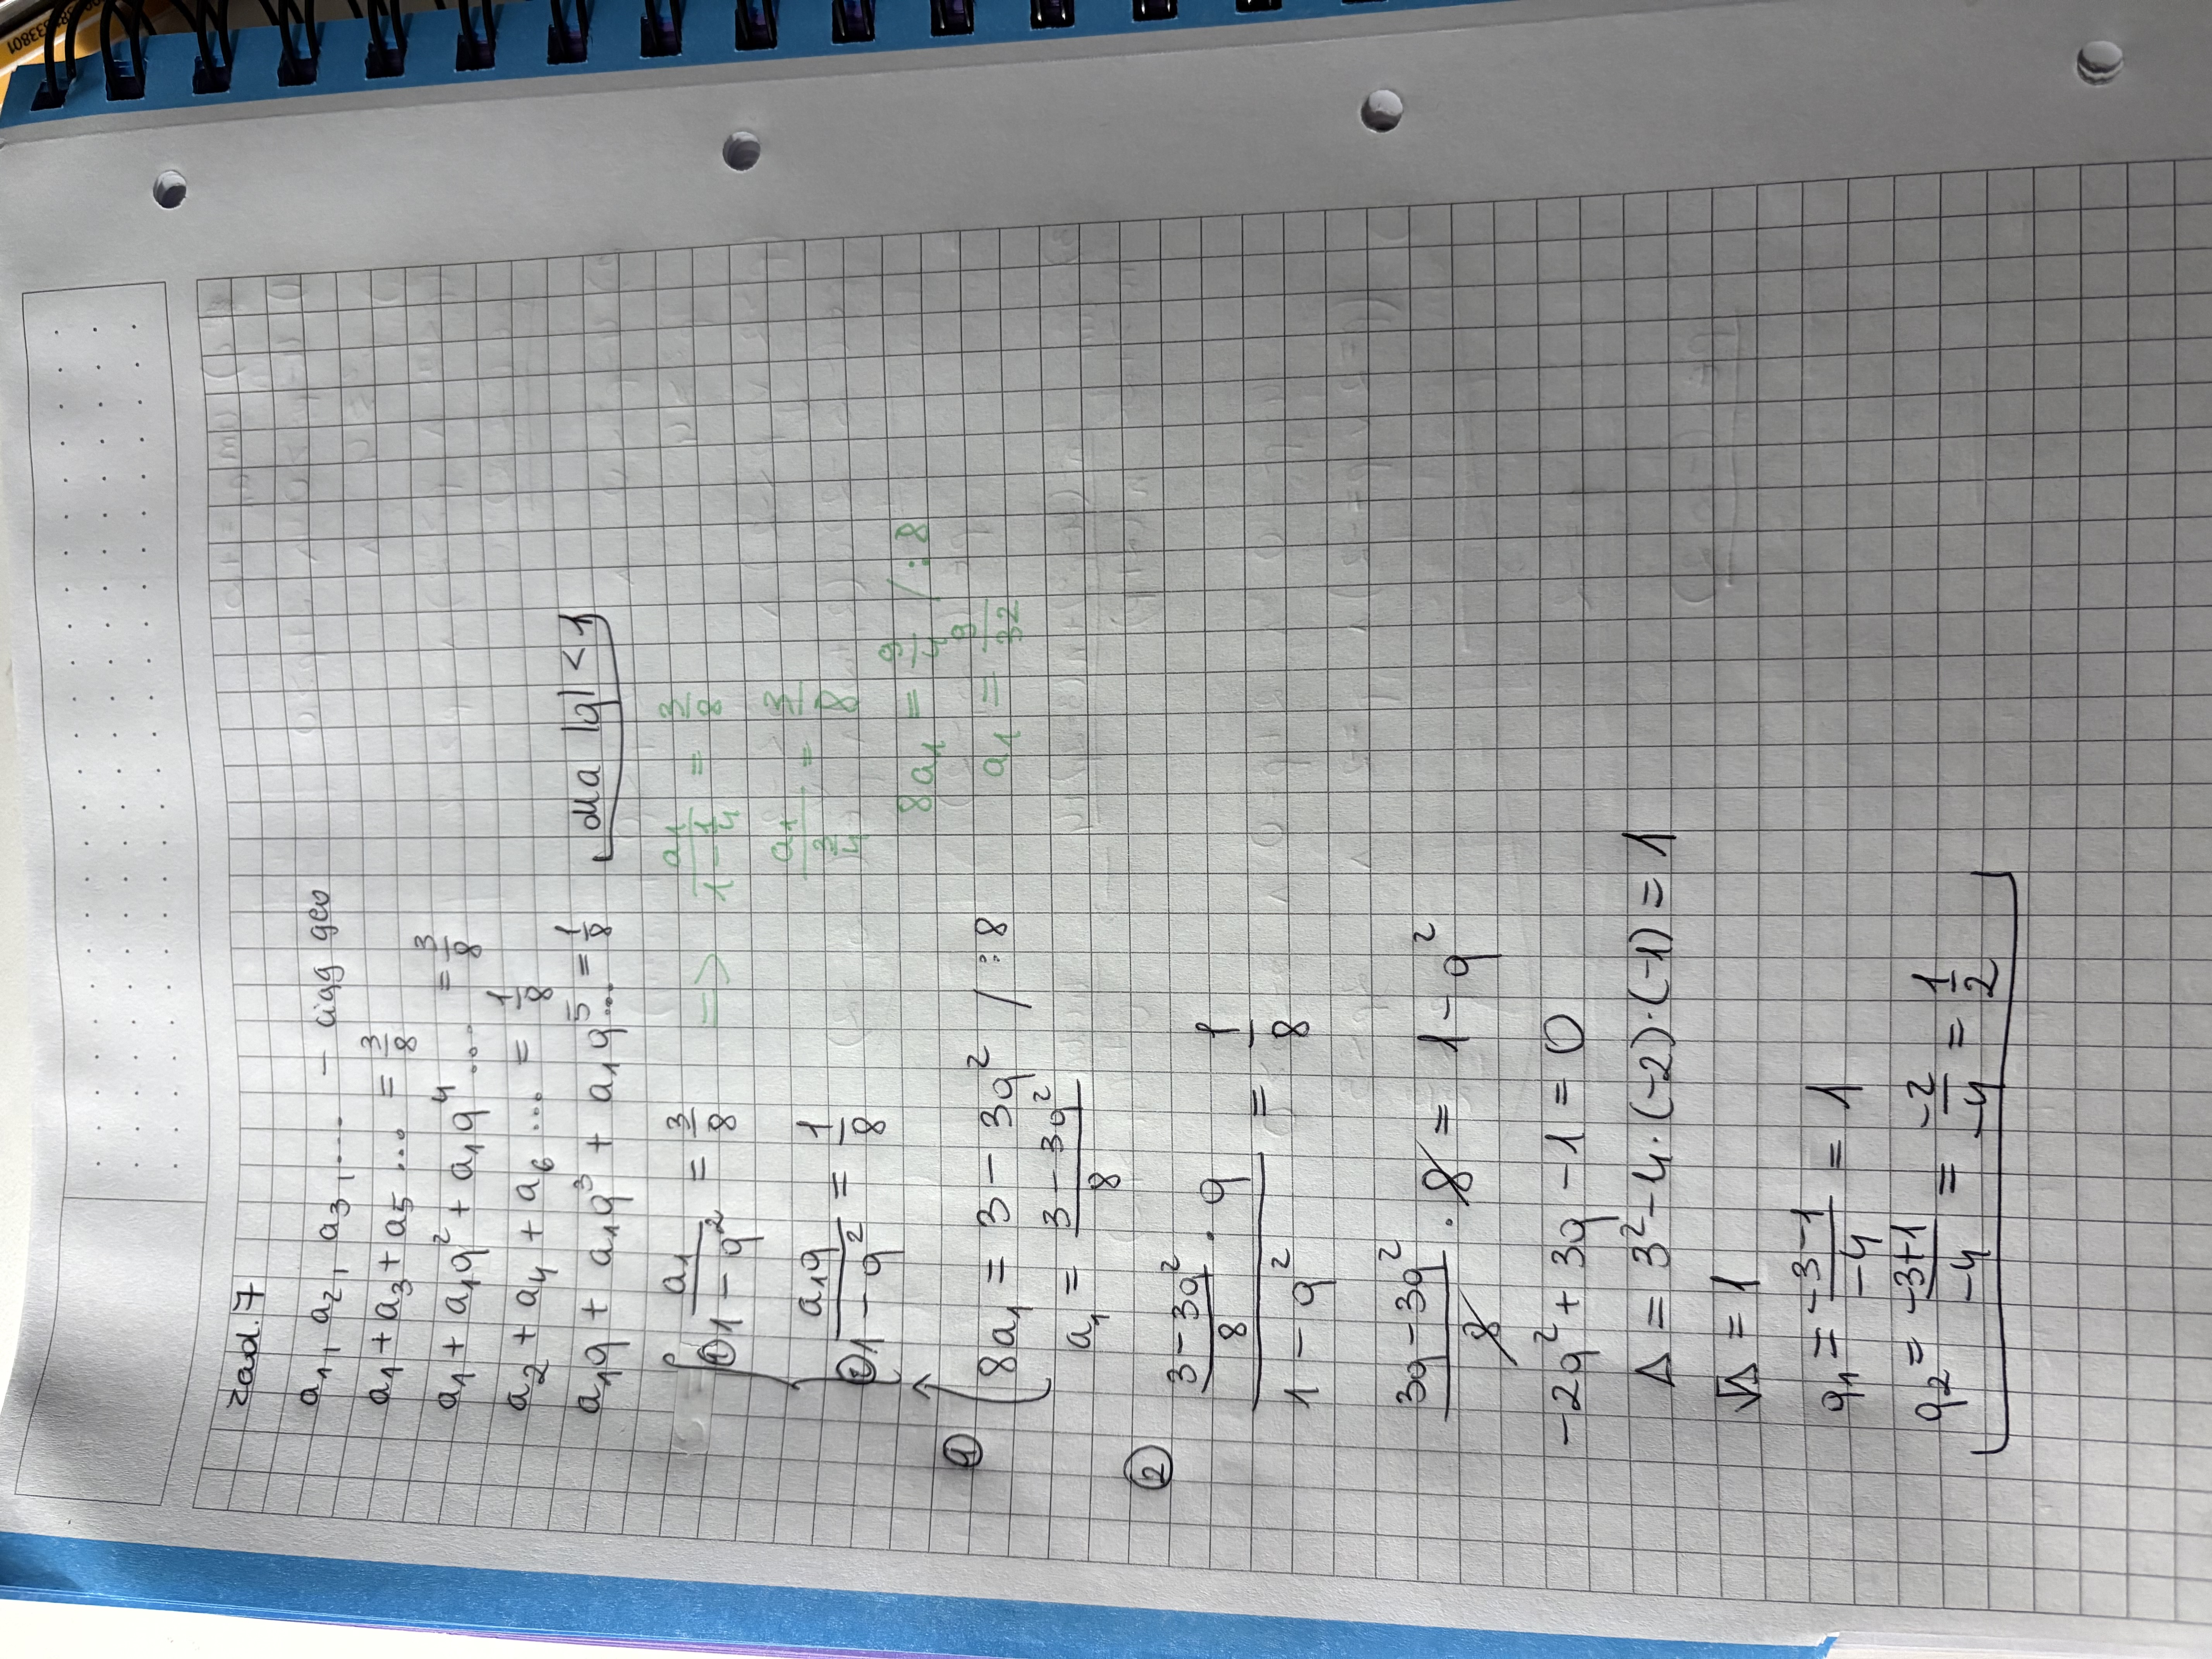 zad. 7
a₁, a₂, a₃, ... – ciąg geo
a₁ + a₃ + a₅ ... = 3/8
a₁ + a₁q² + a₁q⁴ ... = 3/8
a₂ + a₄ + a₆ ... = 1/8
a₁q + a₁q³ + a₁q⁵ ... = 1/8 dla |q| < 1
① a₁/(1 – q²) = 3/8 => a₁/(1 – 1/4) = 3/8
② a₁q/(1 – q²) = 1/8
a₁/(3/4) = 3/8
① 8a₁ = 3 – 3q² / :8
8a₁ = 9/4 / :8
a₁ = (3 – 3q²)/8
a₁ = 9/32
② ((3 – 3q²)/8 · q)/(1 – q²) = 1/8
(3q – 3q²)/8 · 8 = 1 – q²
–2q² + 3q – 1 = 0
Δ = 3² – 4·(–2)·(–1) = 1
√Δ = 1
q₁ = (–3–1)/–4 = 1
q₂ = (–3+1)/–4 = –2/–4 = 1/2